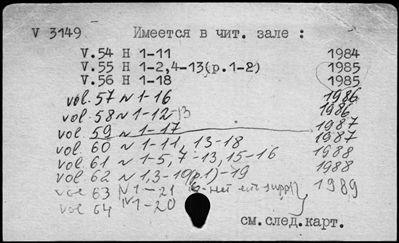 V 3149 Имеется в чит. зале :
V.54 Н 1-11 1984
V.55 Н 1-2,4-13(р.1-2) 1985
V.56 Н 1-18 1985
vol. 57 N 1-16 1986
vol. 58 N 1-12-13 1986
vol 59 N 1-17 1987
vol. 60 N 1-11, 13-18 1987
vol. 61 N 1-5, 7-13, 15-16 1988
vol. 62 N 1,3-10(p.1)-19 1988
vol 63 N 1-21 нет suppl 1989
vol 64 N 1-20
см.след.карт.